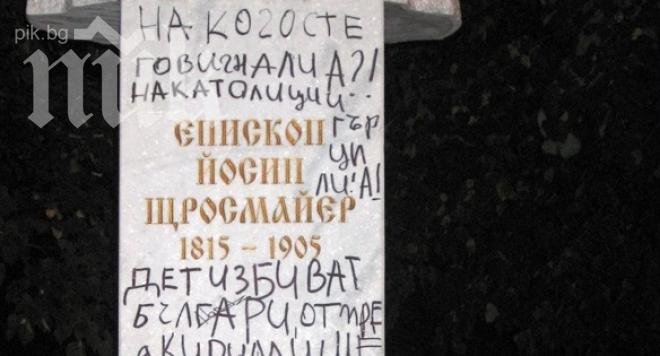 pik.bg
НА КОГОСТЕ
ГОВИГНАЛИ А?!
НАКАТОЛИЦИЙ..
ЕПИСКОП
ГЪР
ЙОСИП
ЦИ
ЛИ! А!
ЩРОСМАЙЕР
1815 – 1905
ДЕТ ИЗБИВАТ
БЪЛГАРИ, ОТ ПРЕ